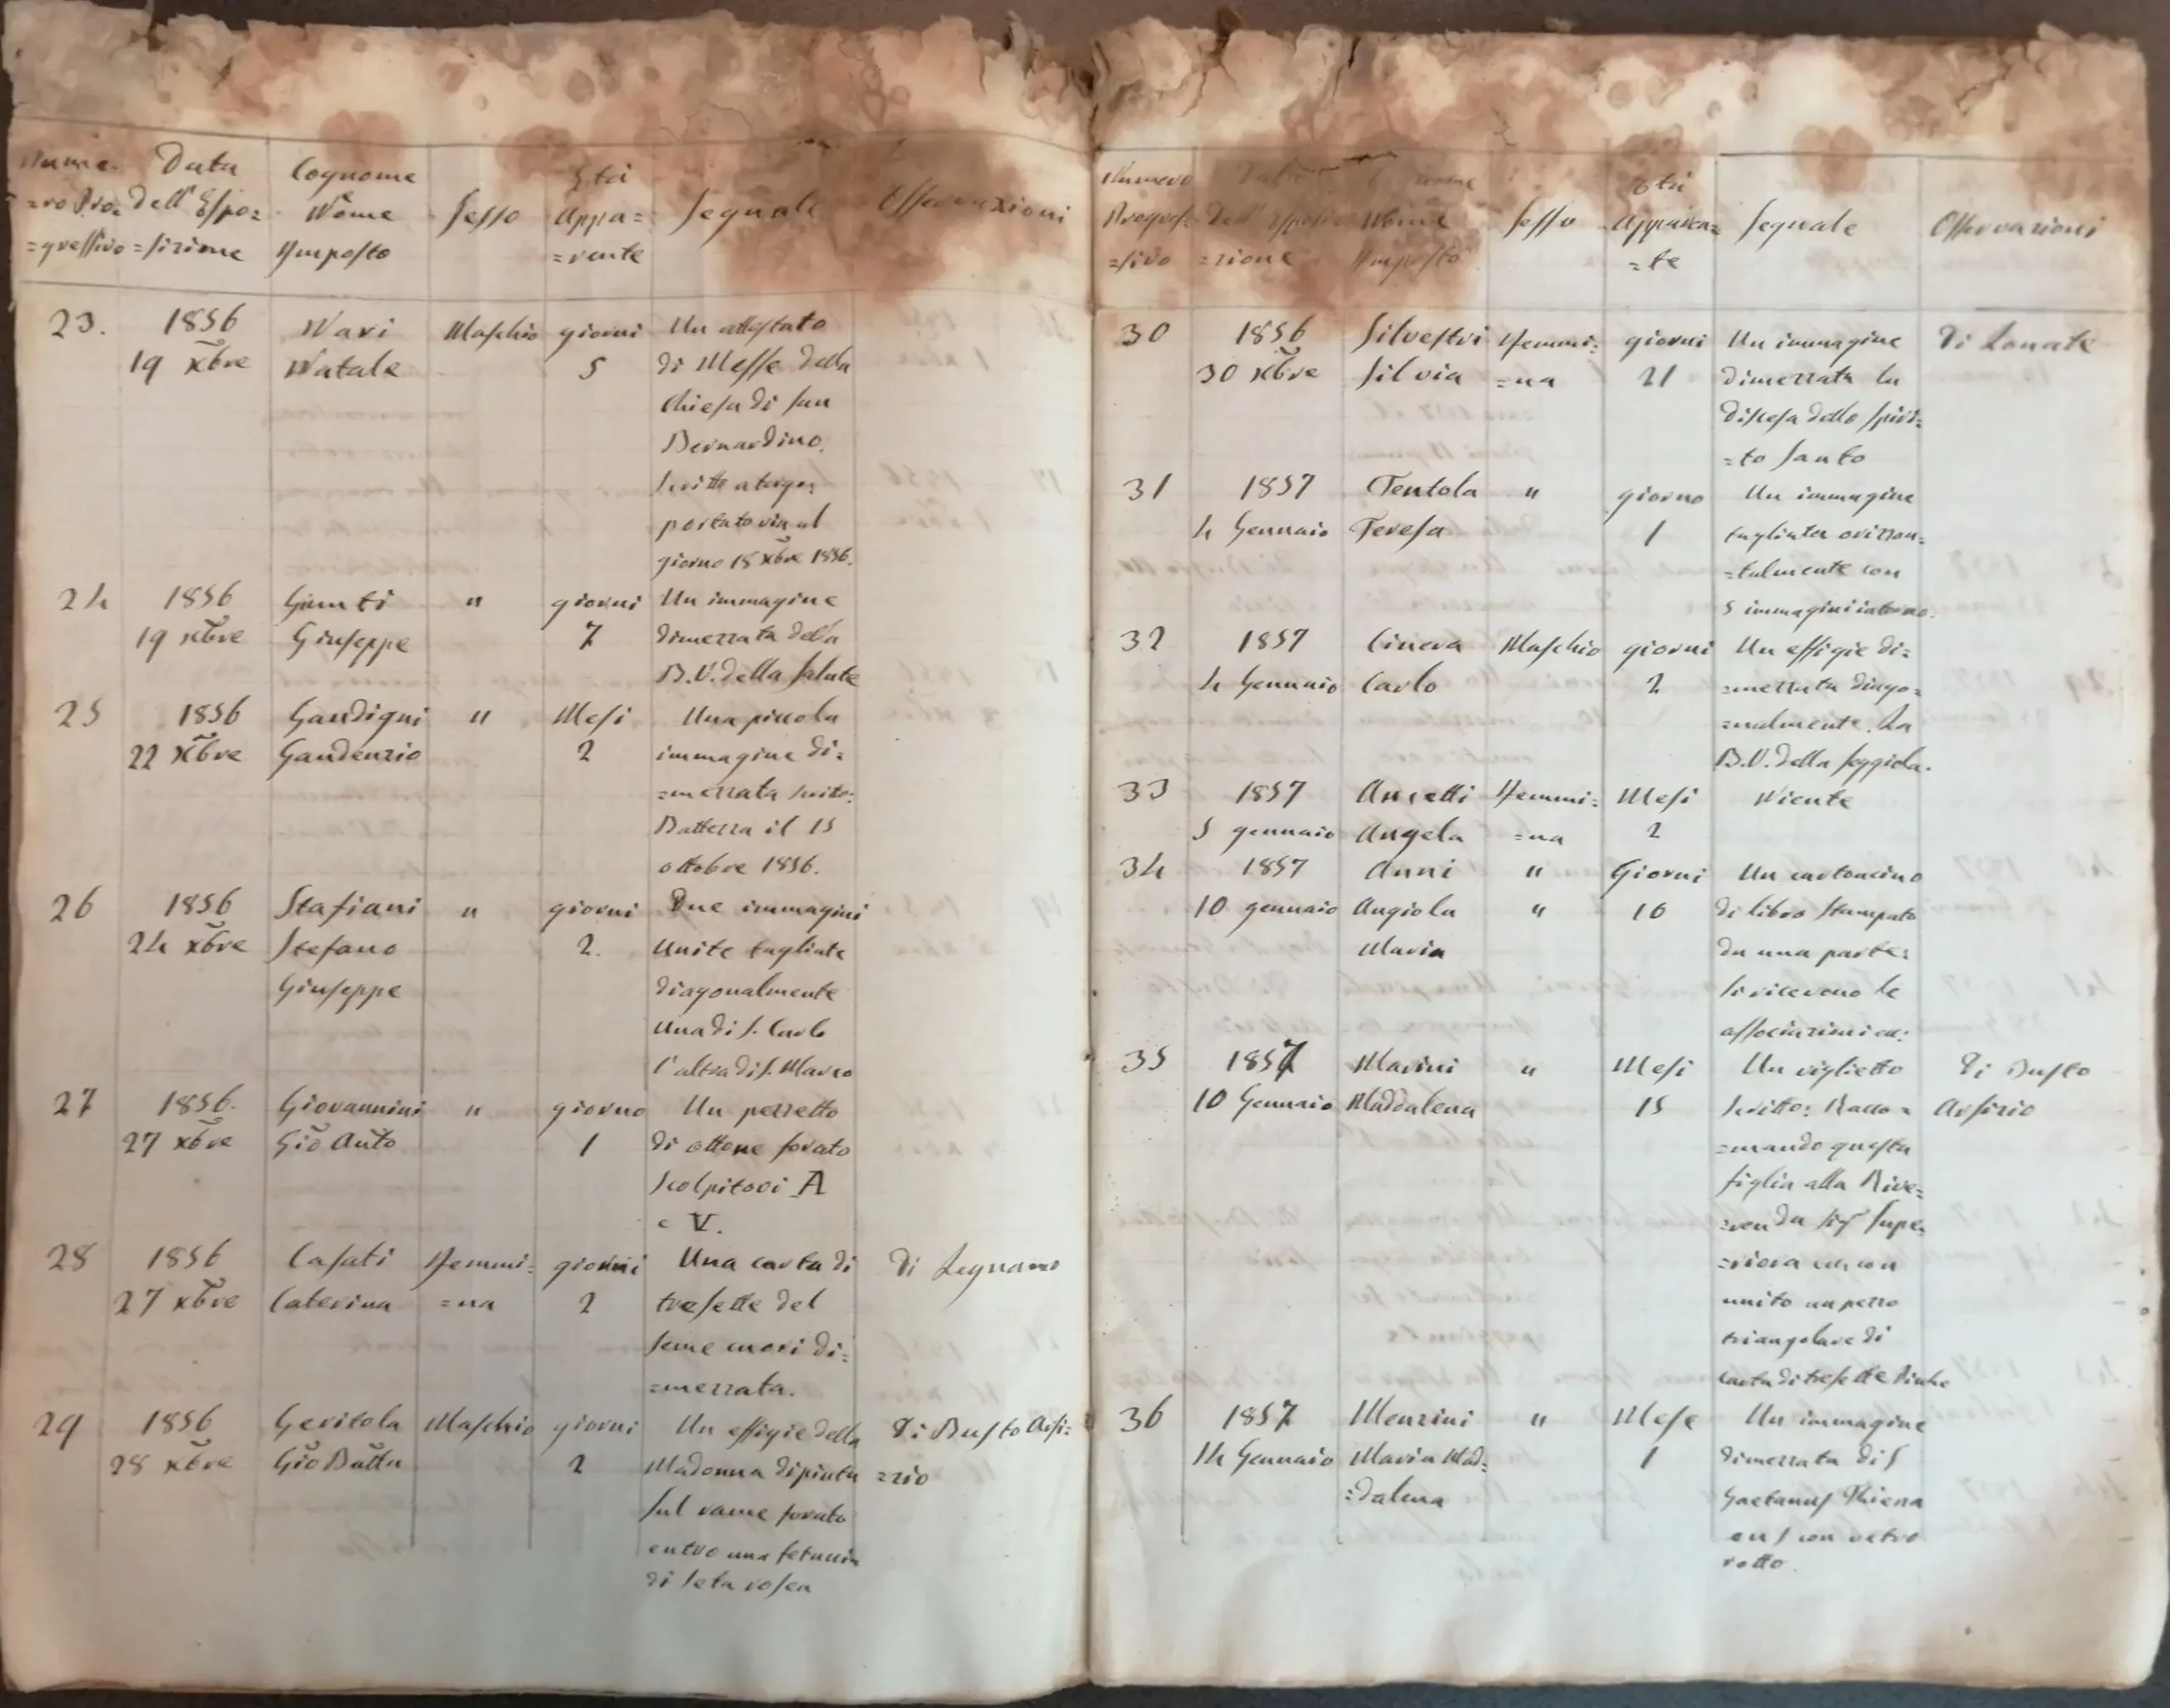 Nume= Data Cognome Età
=ro Pro= dell'Espo= Nome Sesso Appa= Segnale Osservazioni
=gressivo =sizione Imposto =rente
23. 1856 Nari Maschio giorni Un attestato
19 Xbre Natale 5 di Messe della
Chiesa di San
Bernardino.
Scritto a tergo:
portato via al
giorno 18 Xbre 1856.
24 1856 Giunti " giorni Un immagine
19 Xbre Giuseppe 7 dimezzata della
B.V. della Salute
25 1856 Gandigni " Mesi Una piccola
22 Xbre Gaudenzio 2 immagine di=
=mezzata scrito:
Battezza il 15
ottobre 1856.
26 1856 Stafiani " giorni Due immagini
24 Xbre Stefano 2. Unite tagliate
Giuseppe diagonalmente
Una di S. Carlo
l'altra di S. Marco
27 1856. Giovannini " giorno Un pezzetto
27 Xbre Gio Anto 1 di ottone forato
Scolpitovi A
e V.
28 1856 Casati Femmi= giorni Una carta di di Legnano
27 Xbre Caterina =na 2 tresette del
seme cuori di=
=mezzata.
29 1856 Geritola Maschio giorni Un effigie della di Busto Arsi=
28 Xbre Gio Batta 2 Madonna dipinta =zio
sul rame forato
entro una fetuccia
di seta rosea
Numero Data Cognome Età
Progres= dell'Esposi= Nome Sesso Apparen= Segnale Osservazioni
=sivo =zione Imposto =te
30 1856 Silvestri Femmi= giorni Un immagine di Lonate
30 Xbre Silvia =na 21 dimezzata la
discesa dello Spiri=
=to Santo
31 1857 Tentola " giorno Un immagine
4 Gennaio Teresa 1 tagliata orizzon=
=talmente con
5 immagini intorno.
32 1857 Cinera Maschio giorni Un effigie di=
4 Gennaio Carlo 2 =mezzata diago=
=nalmente. La
B.V. della Seggiola.
33 1857 Ancetti Femmi= Mesi Niente
5 gennaio Angela =na 2
34 1857 Anni " Giorni Un cartoncino
10 gennaio Angiola " 16 di libro stampato
Maria da una parte:
Si ricevono le
associazioni ec:
35 1857 Marini " Mesi Un viglietto di Busto
10 Gennaio Maddalena 15 scritto: Racco= Arsizio
=mando questa
figlia alla Rive=
=renda Sig Supe=
=riora ec, con
unito un pezzo
triangolare di
carta di tresette Piche
36 1857 Menzini " Mese Un immagine
14 Gennaio Maria Mad= 1 dimezzata di S
=dalena Gaetanus Thiena
con vetro
rotto.